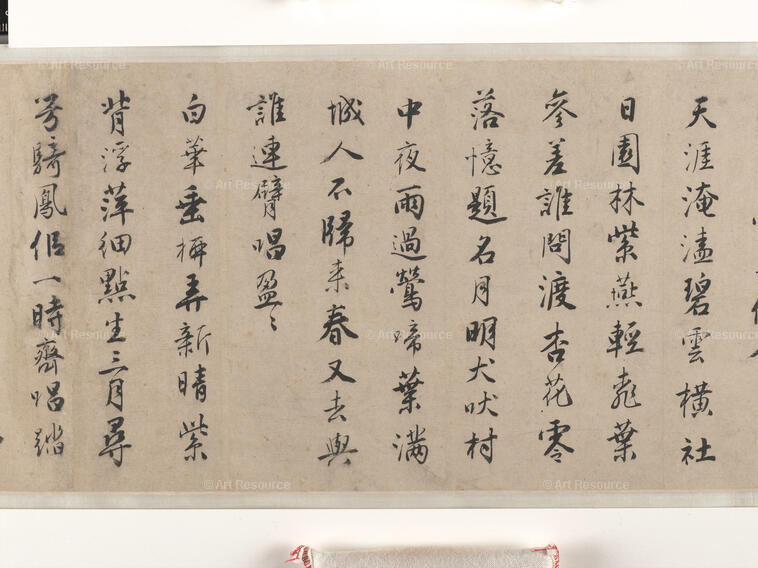 天涯淹溘碧雲橫社
日園林紫燕輕桃葉
參差誰問渡杏花零
落憶題名月明犬吠村
中夜雨過鶯啼葉滿
城人不歸来春又去與
誰連臂唱盈〻
白華垂柄弄新晴紫
背浮萍細點生三月尋
芳騎鳳侶一時齊唱踏
© Art Resource